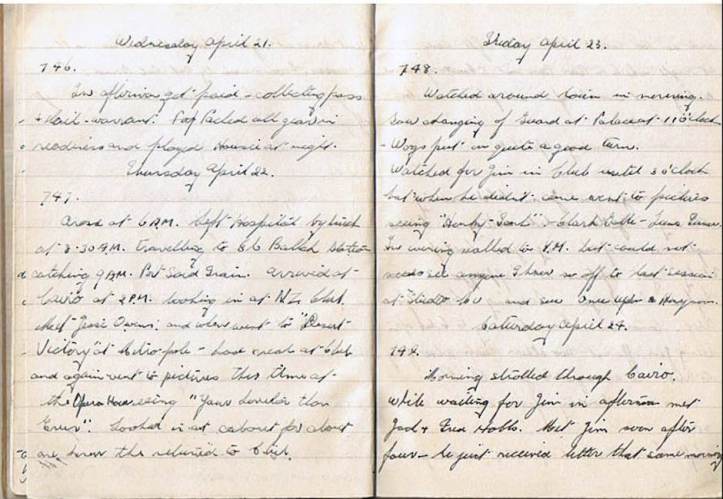 Wednesday April 21.
746.
In afternoon got paid - collecting pass
+ Rail-warrant. Packed all gear in
readiness and played Housie at night.
Thursday April 22.
747.
Arose at 6 A.M. Left Hospital by truck
at 8.30 A.M. travelling to El Ballah Station
catching 9 A.M. Port Said Train. Arrived at
Cairo at 2 P.M. booking in at NZ Club.
Met Jessie and went to "Desert
Victory" at Metropole - had meal at Club
and again went to pictures this time at
the Opera House seeing "You Were Never Lovelier
Looked in at cabaret for about
an hour then returned to Club.
Friday April 23.
748.
Watched around town in morning
Saw changing of Guard at Palace at 11 o'clock
- Wogs put in quite a good turn.
Watched for Jim in Club until 3 o'clock
but when he didn't come went to pictures
seeing "Honky Tonk" - Clark Gable - Lana Turner.
In evening walked to Y.M. but could not
see anyone I knew so off to last session
at Studio and saw Once upon a Honeymoon.
Saturday April 24.
749.
Morning strolled through Cairo.
While waiting for Jim in afternoon met
Jack + Hobbs. Met Jim soon after
four - he just received letter that same morning